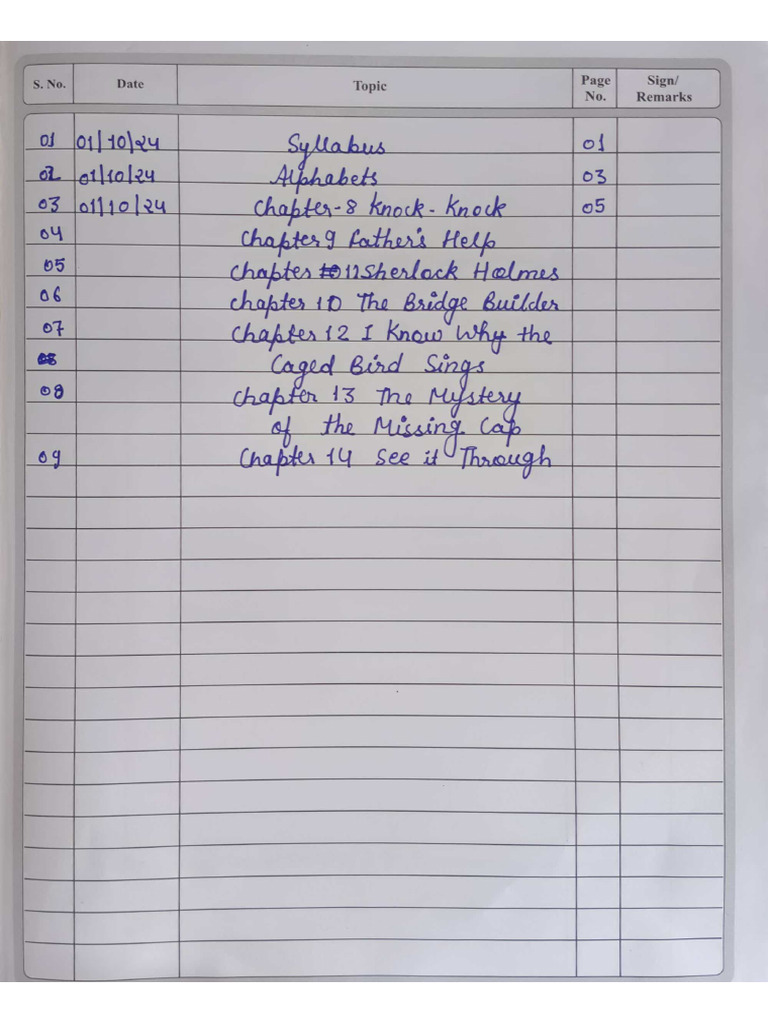 S. No. Date Topic Page No. Sign/ Remarks
01 01/10/24 Syllabus 01
02 01/10/24 Alphabets 03
03 01/10/24 Chapter-8 Knock-Knock 05
04 Chapter 9 Father's Help
05 Chapter 11 Sherlock Holmes
06 Chapter 10 The Bridge Builder
07 Chapter 12 I Know Why the
Caged Bird Sings
08 Chapter 13 The Mystery
of the Missing Cap
09 Chapter 14 See it Through